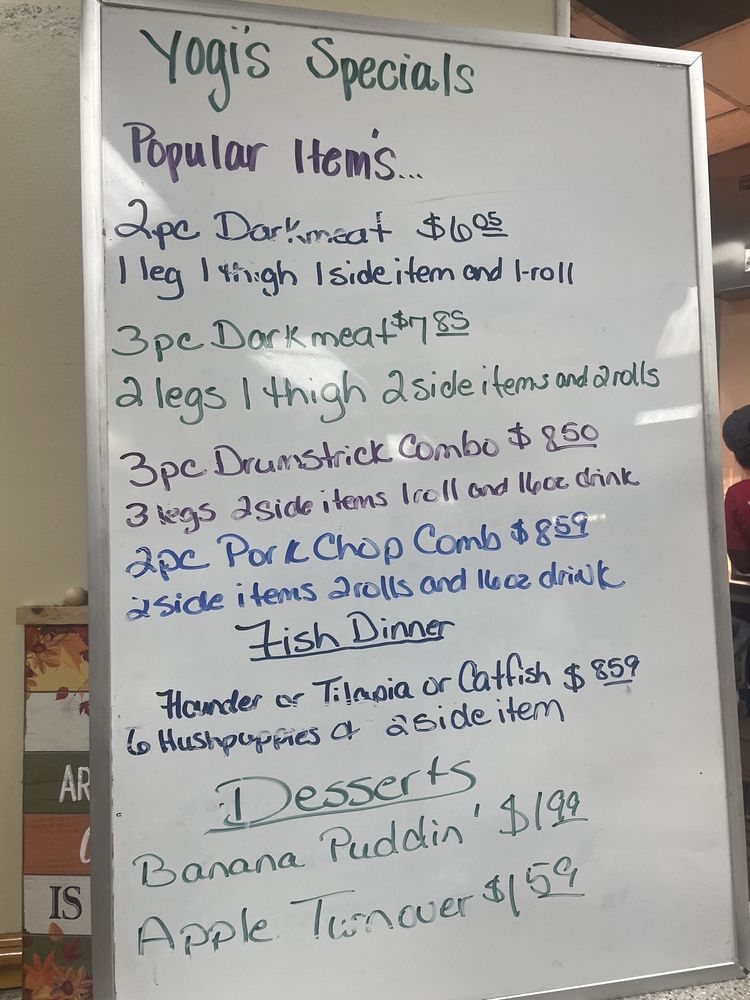 Yogi's Specials
Popular Item's...
2pc Darkmeat $6.05
1 leg 1 thigh 1 side item and 1-roll
3pc Darkmeat $7.85
2 legs 1 thigh 2 side items and 2 rolls
3pc Drumstrick Combo $8.50
3 legs 2 side items 1 roll and 16oz drink
2pc Pork Chop Comb $8.59
2 side items 2 rolls and 16oz drink
Fish Dinner
Flounder or Tilapia or Catfish $8.59
6 Hushpuppies & 2 side item
Desserts
Banana Puddin' $1.99
Apple Turnover $1.59
AR
IS